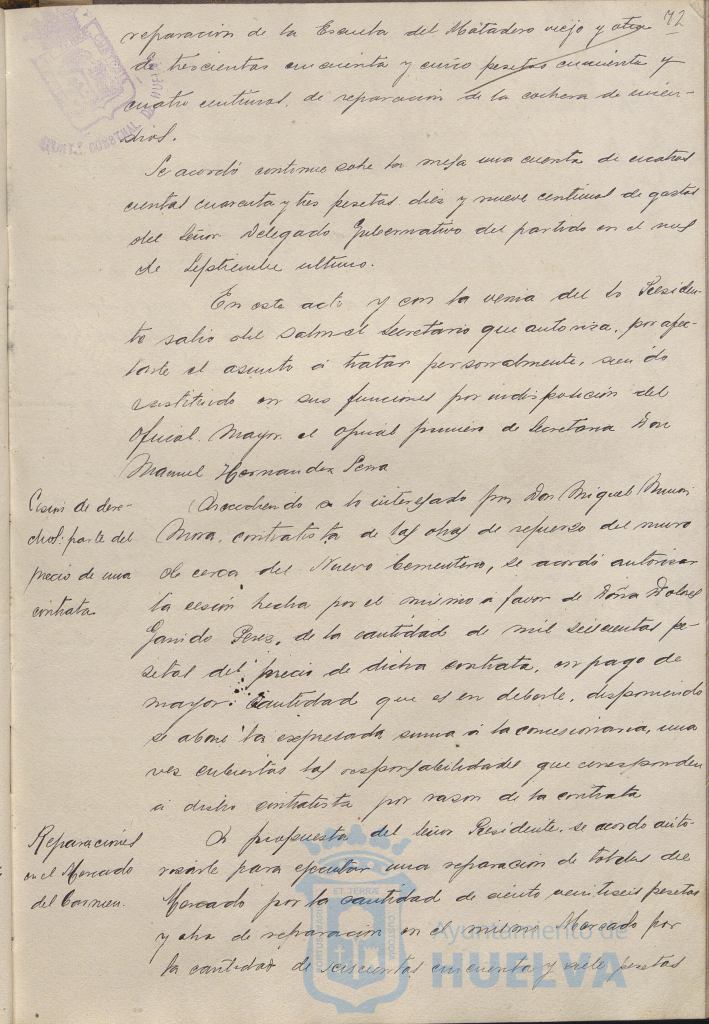 72
reparacion de la Escuela del Matadero viejo y otra
de trescientas cincuenta y cinco pesetas cincuenta y
cuatro centimos, de reparación de la cochera de incen-
dios.
Se acordó continue sobre la mesa una cuenta de cuatro
cientas cuarenta y tres pesetas diez y nueve centimos de gastos
del Señor Delegado Gubernativo del partido en el mes
de Septiembre ultimo.
En este acto y con la venia del Sr Presiden-
te salio del Salon el Secretario que autoriza, por afec-
tarle el asunto a tratar personalmente, siendo
sustituido en sus funciones por indisposición del
Oficial Mayor el oficial primero de Secretaria Don
Manuel Hernandez
Cesion de dere-
chos: parte del
precio de una
contrata
Accediendo a lo interesado por Don Miguel
Mora, contratista de las obras de refuerzo del muro
de cerca del Nuevo Cementerio, se acordó autorizar
la cesión hecha por el mismo a favor de Doña Dolores
Garrido Perez, de la cantidad de mil seiscientas pe-
setas del precio de dicha contrata, en pago de
mayor cantidad que es en deberle, disponiendo
se abone la expresada suma á la concesionaria, una
vez cubiertas las responsabilidades que corresponden
a dicho contratista por razon de la contrata
Reparaciones
en el Mercado
del Carmen.
A propuesta del Señor Presidente, se acordo auto-
rizarle para ejecutar una reparacion de toldos del
Mercado por la cantidad de ciento veintiseis pesetas
y otra de reparación en el mismo Mercado por
la cantidad de seiscientas cincuenta y siete pesetas
Ayuntamiento de
HUELVA